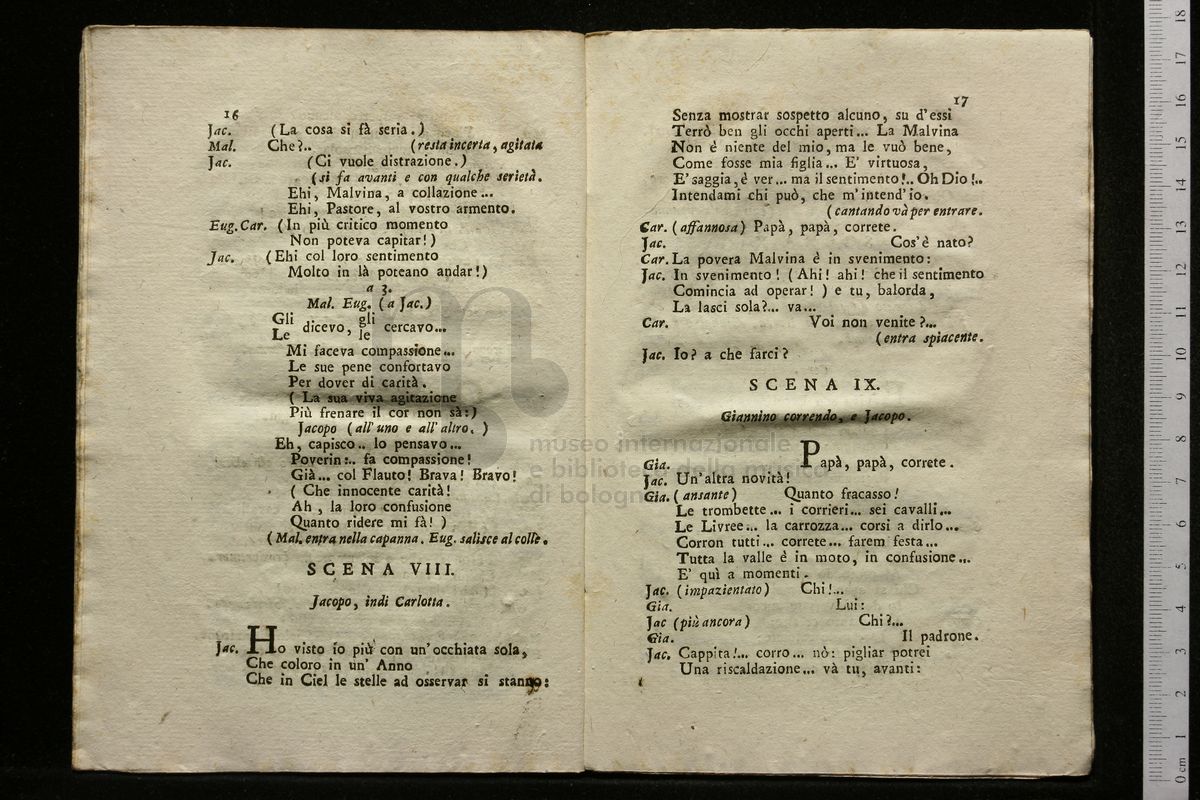 16
Jac. (La cosa si fà seria.)
Mal. Che?.. (resta incerta, agitata
Jac. (Ci vuole distrazione.)
(si fa avanti e con qualche serietà.
Ehi, Malvina, a collazione...
Ehi, Pastore, al vostro armento.
Eug. Car. (In più critico momento
Non poteva capitar!)
Jac. (Ehi col loro sentimento
Molto in là poteano andar!)
a 3.
Mal. Eug. (a Jac.)
Gli dicevo, gli cercavo...
Le le
Mi faceva compassione...
Le sue pene confortavo
Per dover di carità.
( La sua viva agitazione
Più frenare il cor non sà:)
Jacopo (all' uno e all' altro. )
Eh, capisco.. lo pensavo...
Poverin:.. fa compassione!
Già... col Flauto! Brava! Bravo!
( Che innocente carità!
Ah, la loro confusione
Quanto ridere mi fà! )
(Mal. entra nella capanna. Eug. salisce al colle.
SCENA VIII.
Jacopo, indi Carlotta.
Jac. Ho visto io più con un' occhiata sola,
Che coloro in un' Anno
Che in Ciel le stelle ad osservar si stanno:
17
Senza mostrar sospetto alcuno, su d'essi
Terrò ben gli occhi aperti... La Malvina
Non è niente del mio, ma le vuò bene,
Come fosse mia figlia... E' virtuosa,
E' saggia, è ver... ma il sentimento!.. Oh Dio!..
Intendami chi può, che m'intend'io.
(cantando và per entrare.
Car. (affannosa) Papà, papà, correte.
Jac. Cos'è nato?
Car. La povera Malvina è in svenimento:
Jac. In svenimento! (Ahi! ahi! che il sentimento
Comincia ad operar! ) e tu, balorda,
La lasci sola?... va...
Car. Voi non venite?...
(entra spiacente.
Jac. Io? a che farci?
SCENA IX.
Giannino correndo, e Jacopo.
Gia. Papà, papà, correte.
Jac. Un'altra novità!
Gia. (ansante) Quanto fracasso!
Le trombette... i corrieri... sei cavalli...
Le Livree... la carrozza... corsi a dirlo...
Corron tutti... correte... farem festa...
Tutta la valle è in moto, in confusione...
E' quì a momenti.
Jac. (impazientato) Chi!...
Gia. Lui:
Jac (più ancora) Chi?...
Gia. Il padrone.
Jac. Cappita!... corro... nò: pigliar potrei
Una riscaldazione... và tu, avanti:
museo internazionale
e biblioteca della musica
di bologna
0 cm 1 2 3 4 5 6 7 8 9 10 11 12 13 14 15 16 17 18